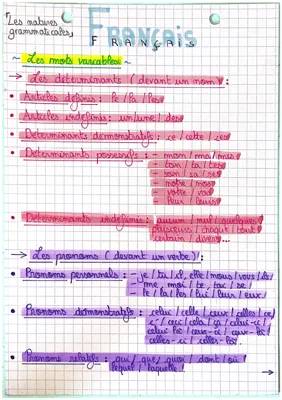 Les natures
grammaticales
Français
FRANÇAIS
~ Les mots variables ~
→ Les déterminants (devant un nom) :
• Articles définis : le / la / les
• Articles indéfinis : un / une / des
• Déterminants démonstratifs : ce / cette / ces
• Déterminants possessifs : - mon / ma / mes
- ton / ta / tes
- son / sa / ses
- notre / nos
- votre / vos
- leur / leurs
• Déterminants indéfinis : aucun / nul / quelques
plusieurs / chaque / tout
certain / divers ...
→ Les pronoms (devant un verbe) :
• Pronoms personnels : - je / tu / il, elle / nous / vous / ils
- me, moi / te, toi / se /
- le / la / les / lui / leur / eux /
• Pronoms démonstratifs : celui / celle / ceux / celles - ce /
c' / ceci / cela / ça / celui-ci /
celui-là / ceux-ci / ceux-là
celles-ci / celles-là
• Pronoms relatifs : qui / que / quoi / dont / où /
lequel / laquelle /